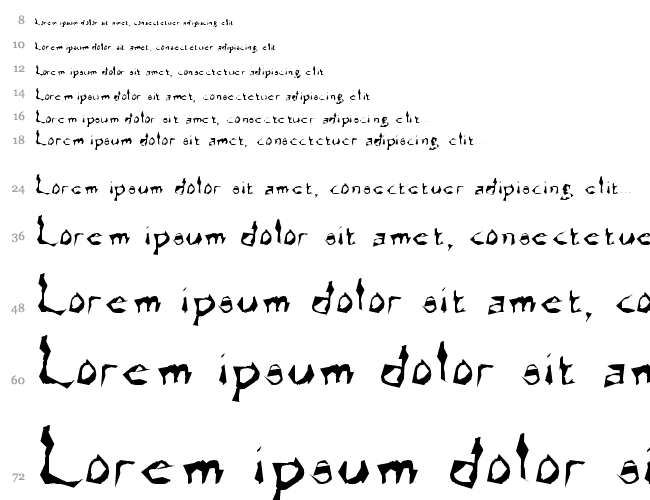 8 Lorem ipsum dolor sit amet, consectetuer adipiscing elit
10 Lorem ipsum dolor sit amet, consectetuer adipiscing, elit
12 Lorem ipsum dolor sit amet, consectetuer adipiscing, elit
14 Lorem ipsum dolor sit amet, consectetuer adipiscing, elit
16 Lorem ipsum dolor sit amet, consectetuer adipiscing, elit...
18 Lorem ipsum dolor sit amet, consectetuer adipiscing, elit...
24 Lorem ipsum dolor sit amet, consectetuer adipiscing, elit...
36 Lorem ipsum dolor sit amet, consectetue
48 Lorem ipsum dolor sit amet, co
60 Lorem ipsum dolor sit am
72 Lorem ipsum dolor si